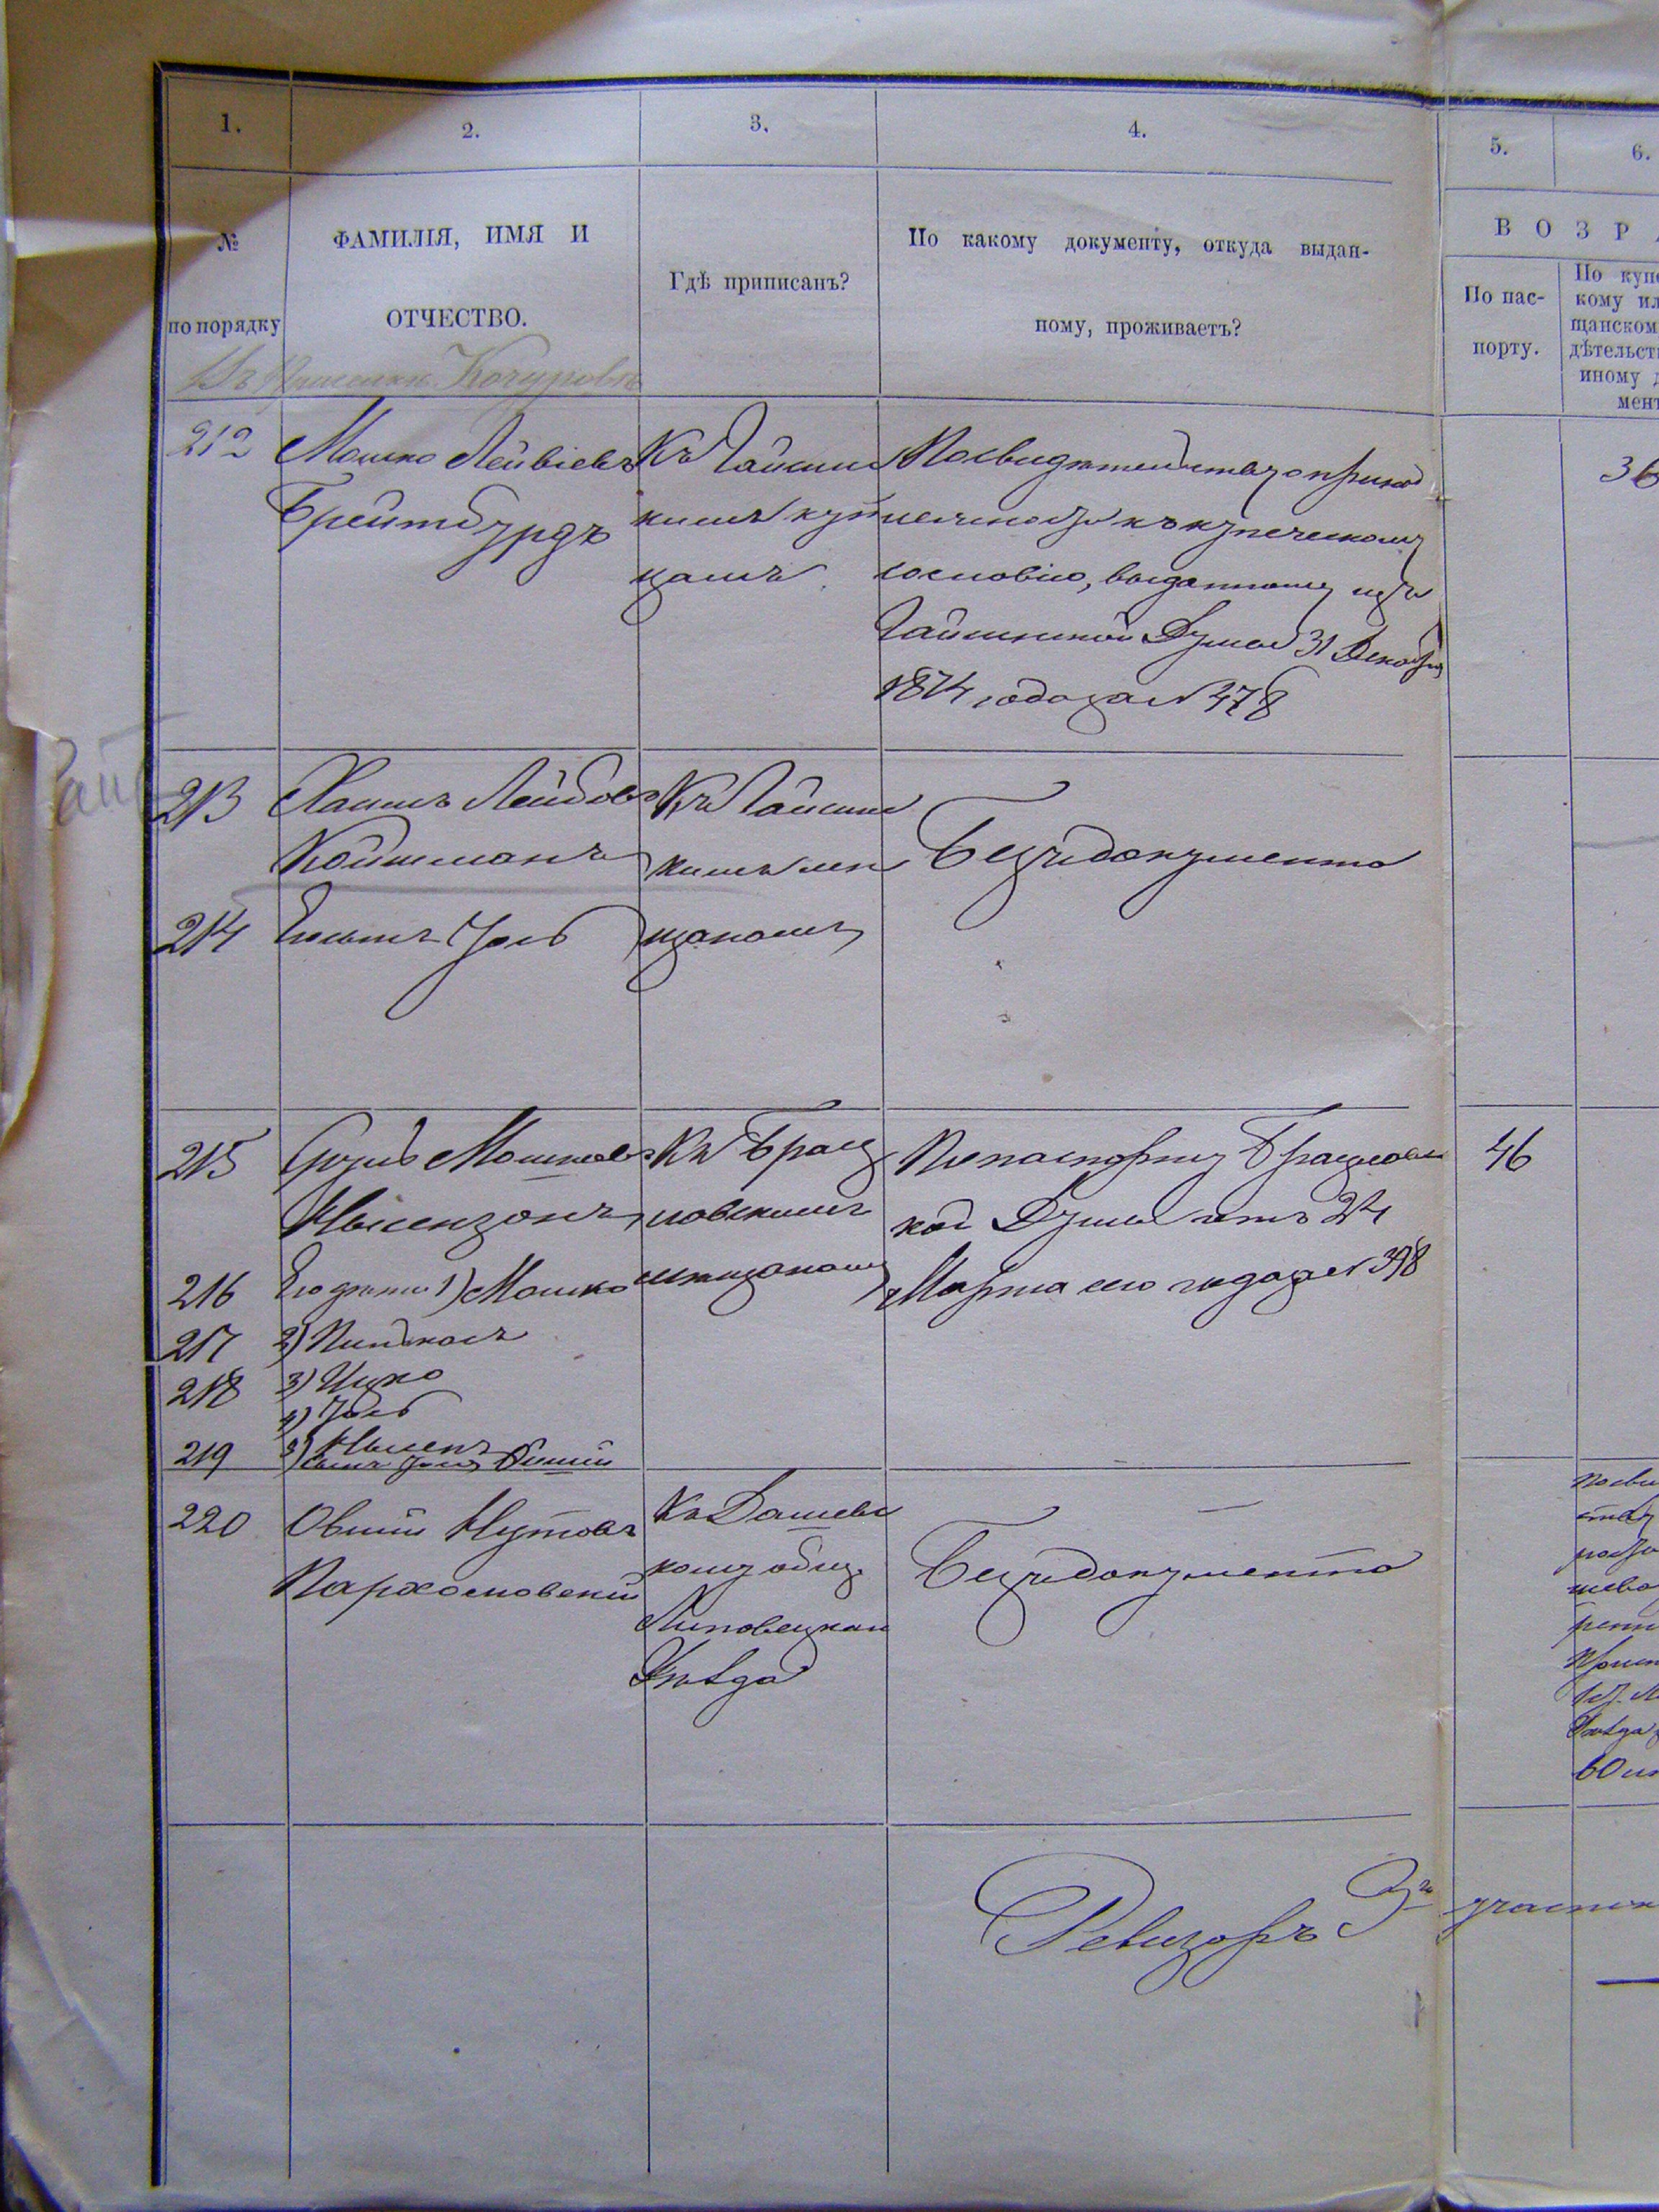 1.
2.
3.
4.
5.
6.
№
по порядку
ФАМИЛІЯ, ИМЯ И
ОТЧЕСТВО.
Гдѣ приписанъ?
По какому документу, откуда выдан-
ному, проживаетъ?
В О З Р
По пас-
порту.
По купе
кому ил
щанском
дѣтельст
иному д
мент
Въ Кочуровѣ
212
Мошко Лейвіевъ
Брейтбурдъ
Къ Гайсин
кимъ куп
цамъ
По свидѣтельству о принад
лежности къ купеческому
сословію, выданному изъ
Гайсинской Думы 31 Декабря
1874 года за № 478
36
213
Хаимъ Лейбовъ
Койтманъ
Къ Гайсин
кимъ мѣ
щанамъ
Безъ документа
214
Его сынъ Іось
215
Мошковъ
Нысензонъ
Къ Брац
лавскимъ
мѣщанамъ
По паспорту Брацлавс
кой Думы отъ 24
Марта сего года за № 398
46
216
Его дѣти 1) Мошко
217
2) Пинхасъ
218
3) Ицко
4) Іось
219
5) Нысенъ
220
Овшій Нутовъ
Пархомовскій
Къ Дашевс
кому общ.
Липовецкаго
Уѣзда
Безъ документа
60
Ревизоръ 3го участк